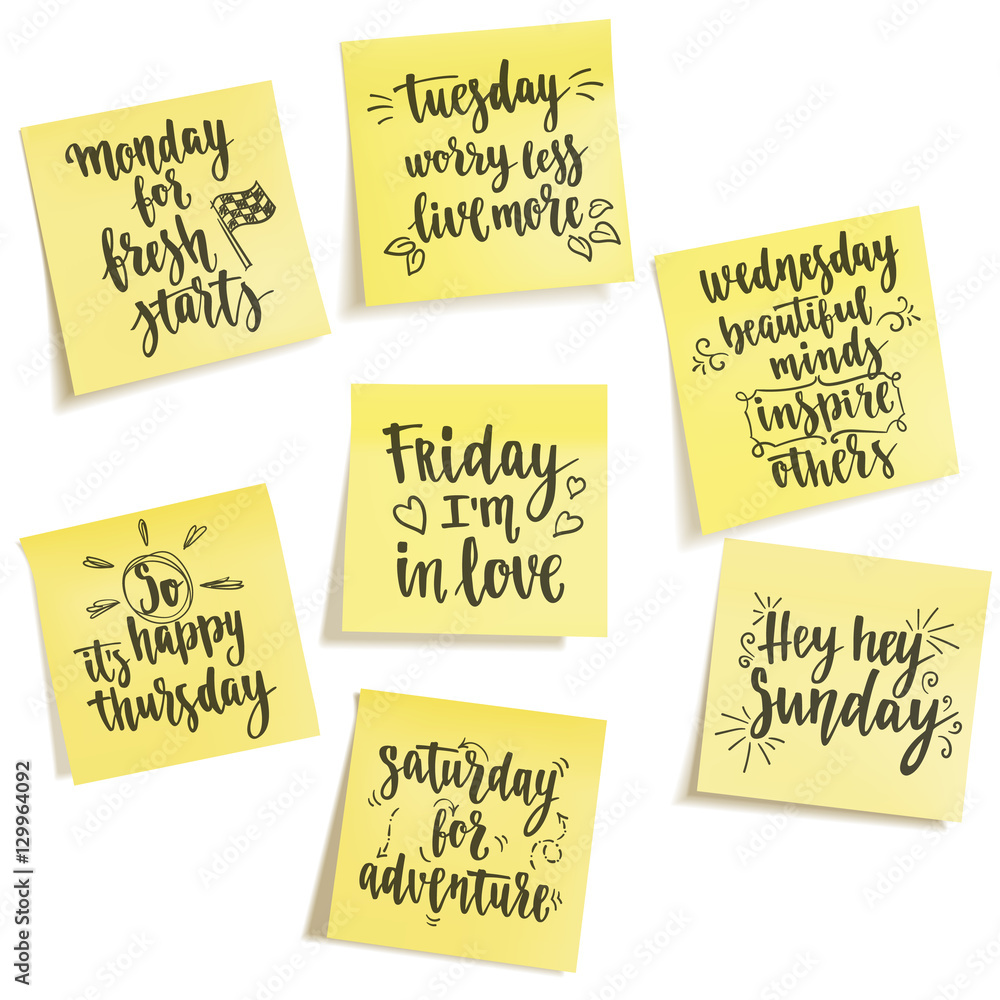 monday
for
fresh
starts
tuesday
worry less
live more
wednesday
beautiful
minds
inspire
others
So
it's happy
thursday
Friday
I'm
in love
Saturday
for
adventure
Hey hey
Sunday
Adobe Stock | #129964092